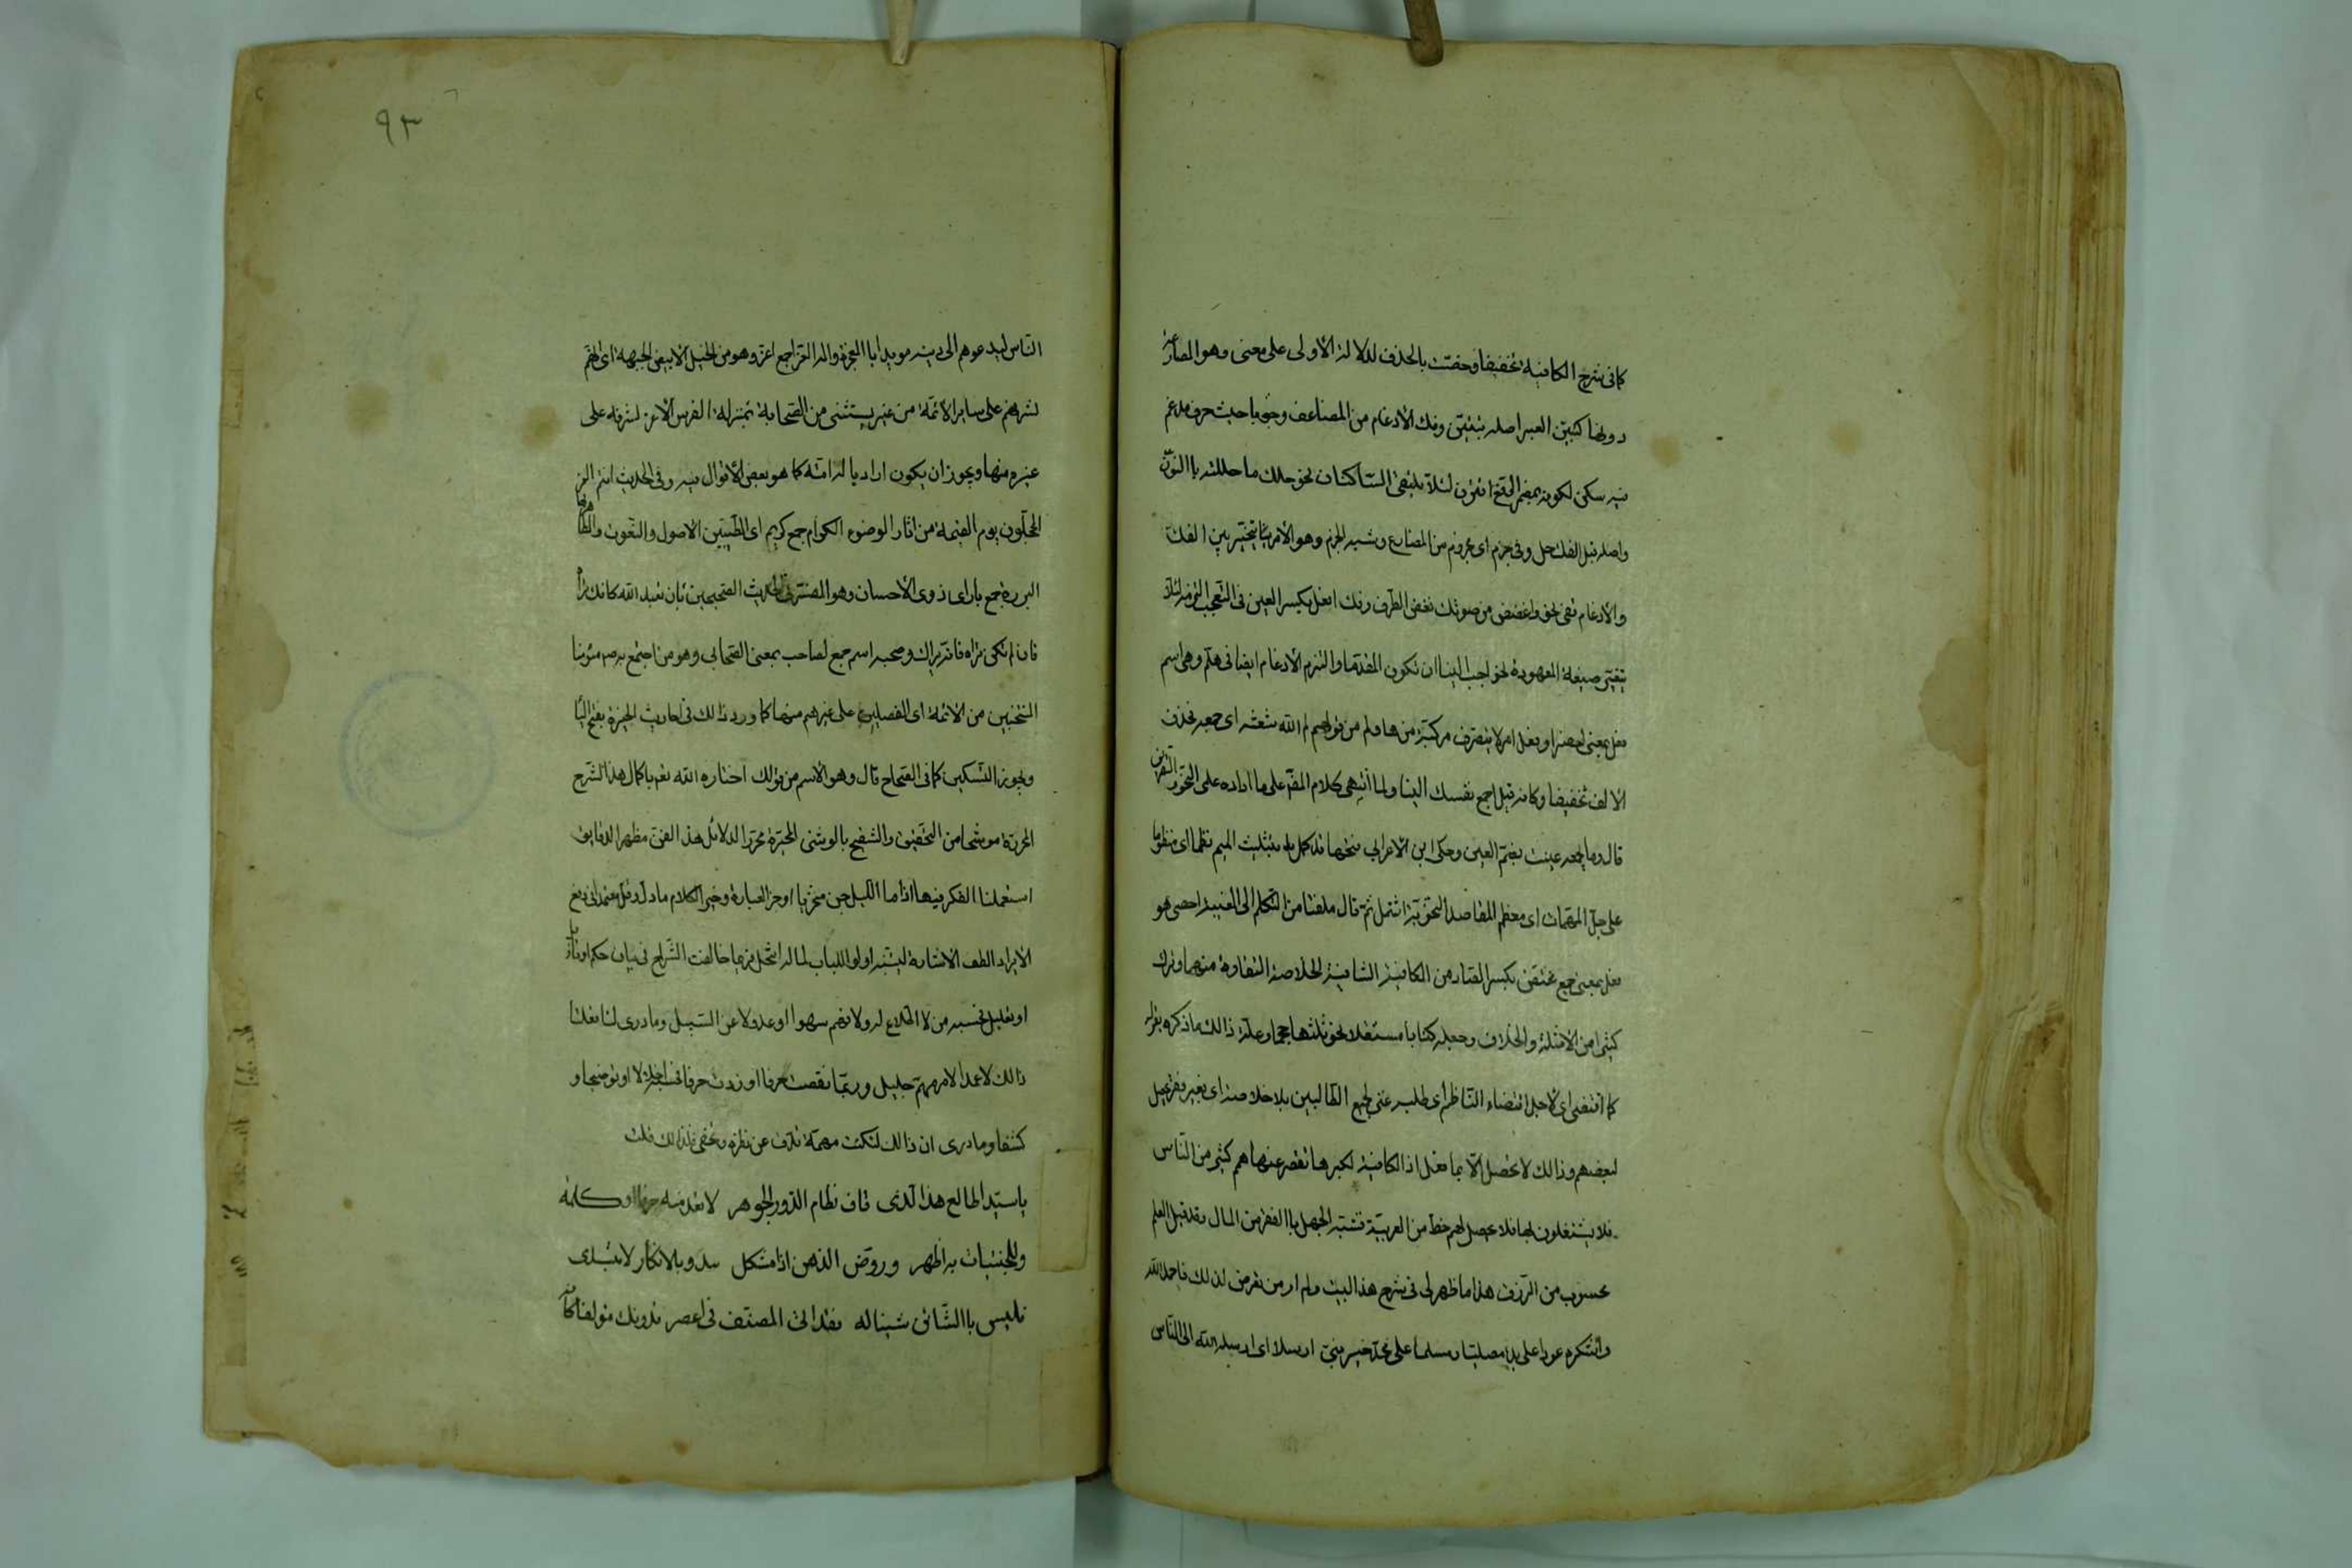 كما فى شرح الكافية تخفيفا وخصت بالحذف لدلالة الأولى على معنى وهو المضارعة
دونها كتبين العبر اصله تتبين وفك الأدغام من المضاعف وجوبا حيث حرف مدغم
فيه سكن لكونه بمضمر الرفع اقترن لئلا يلتقى الساكنان نحو حللت ما حللته باالنون
واصله قبل الفك حل وفى جزم اى مجزوم من المضارع وشبه الجزم وهو الأمر تخيير بين الفك
والأدغام قفى نحو واغضض من صوتك فغض الطرف وفك افعل بكسر العين فى التعجب التزم لئلا
يتغير صيغة المعهودة نحو احبب الينا ان تكون المقدما والتزم الأدغام ايضا فى هلم وهى اسم
فعل بمعنى احضر او فعل امر لا يتصرف مركبة من ها ولم من قولهم لم الله شعثه اى جمعه فحذف
الالف تخفيفا وكانه قيل اجمع نفسك الينا ولما انتهى كلام المصنف على ما اراده على النحو والتصريف
قال وما بجمعه عنيت بضم العين وحكى ابن الأعرابى فتحها قد كمل بتثليث الميم نظما اى منظوما
على جل المهمات اى معظم المقاصد النحوية اشتمل ثم قال ملتفتا من التكلم الى الغيبة احصى هو
فعل بمعنى جمع مختصرا بكسر الصاد من الكافية الشافية الخلاصة النقاوة منهما وترك
كثيرا من الامثلة والخلاف وجعله كتابا مستقلا نحو ثلثها حجما وعلة ذالك ما ذكره بقوله
كما اقتضى اى لأجل اقتضاء الناظم اى طلبه غنى لجميع الطالبين بلا خلاصة اى بغير فقر يحصل
لبعضهم وذالك لا يحصل الا بما فعل اذ الكافية لكبرها تقصر عنها هم كثير من الناس
فلا يشتغلون بها فلا يحصل لهم حظ من العربية فشبه الجهل باالفقر من المال وقد قيل العلم
محسوب من الرزق هذا ما ظهر لى فى شرح هذا البيت ولم ار من تعرض لذلك فاحمد الله
واشكره عودا على بدا مصليا ومسلما على محمد خير نبى ارسلا اى ارسله الله الى الناس
٩٣
الناس ليدعوهم الى دينه مويدا باالمعجزة واله الغر اجمع اغر وهو من الخيل الأبيض الجبهة اى انهم
لشرفهم على ساير الأئمة من غير يستثنى من الصحابة بمنزلة الفرس الأغر لشرفه على
غيره منها ويجوز ان يكون اراد باله امته كما هو بعض الأقوال فيه وفى الحديث انتم الغر
المحجلون يوم القيمة من اثار الوضوء الكرام جمع كريم اى الطيبين الاصول والنعوت والطاهريها
البررة جمع بار اى ذوى الأحسان وهو المفسر فى حديث الصحيحين بان تعبد الله كانك تراه
فان لم تكن تراه فانه يراك وصحبه اسم جمع لصاحب بمعنى الصحابى وهو من اجتمع به ص مؤمنا
المنتخبين من الأئمة اى المفضلين على غيرهم منها كما ورد ذالك فى احاديث الخيرة بفتح اليا
ويجوز التسكين كما فى الصحاح قال وهو الاسم من قولك اختاره الله نعم باكمال هذا الشرح
المحرر موشحا من التحقيق والتنقيح بالوشى المحبرة محررا لدلائل هذا الفن مظهرا لدقايق
استعملنا الفكر فيها اذا ما الليل جن متحريا اوجز العبارة وخير الكلام ما دل وقل معتمدا فى دفع
الايراد الطف الاشارة ليتنبه اولو اللباب لما له انتحل فربما خالفت الشراح فى بيان حكم او تاويل
او تعليل فحسبه من لا اطلاع له ولا فهم سهوا او عدولا عن السبيل وما درى لننا فعلنا
ذالك لا عمدا لامر مهم جليل وربما نقصت حرفا او زدت حرفا او توضيحا و
كشفا وما درى ان ذالك لنكت مهمة تدق عن نظره وتخفى فلذالك قلت
ياسيدا طالع هذا الذى فاق نظام الدر والجوهر لا تعد منه حرفا او كلمة
وللمخبئات به اظهر وروض الذهن اذا مشكل يبدو بالانكار لا تبتدى
فليس باالشانى شينا له فقد اتى المصنف فى اعصر فدونك مؤلفا كانه